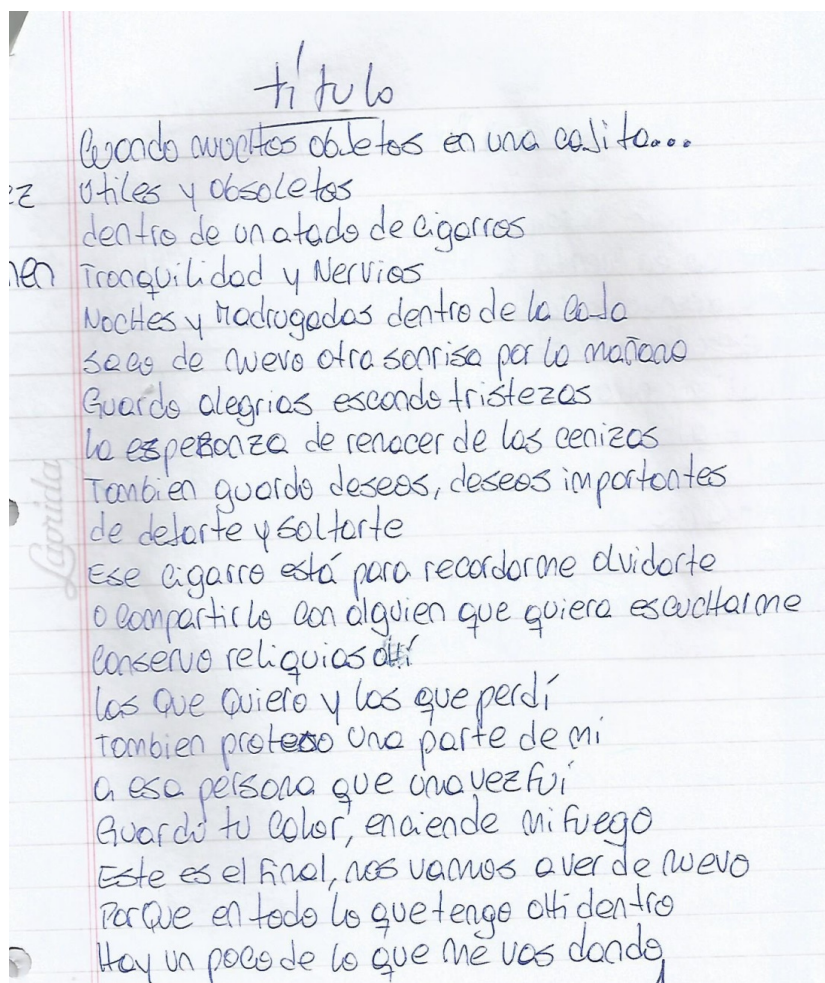 título
Guardo muchos objetos en una cajita...
ez
Utiles y obsoletos
dentro de un atado de cigarros
nen
Tranquilidad y Nervios
Noches y Madrugadas dentro de la caja
saco de nuevo otra sonrisa por la mañana
Guardo alegrias escondo tristezas
la esperanza de renacer de las cenizas
Tambien guardo deseos, deseos importantes
de dejarte y soltarte
Ese cigarro está para recordarme olvidarte
o compartirlo con alguien que quiera escucharme
Conservo reliquias allí
las que quiero y las que perdí
Tambien protejo una parte de mi
a esa persona que una vez fuí
Guardo tu calor, enciende mi fuego
Este es el final, nos vamos a ver de nuevo
Porque en todo lo que tengo alli dentro
Hay un poco de lo que me vas dando
Laprida